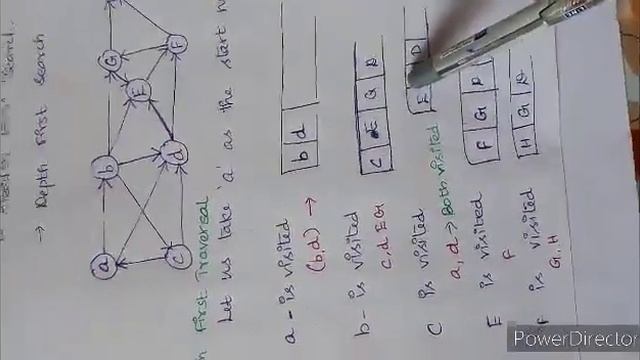 → Depth First search
G
F
E
b
d
a
c
First Traversal
Let us take 'a' as the start
a - is visited
(b,d) →
b d
b - is visited
c, d E G
C E G D
C is visited
a, d → Both visited
E D
E is visited
F
F G D
F is visited
G, H
H G D
PowerDirector